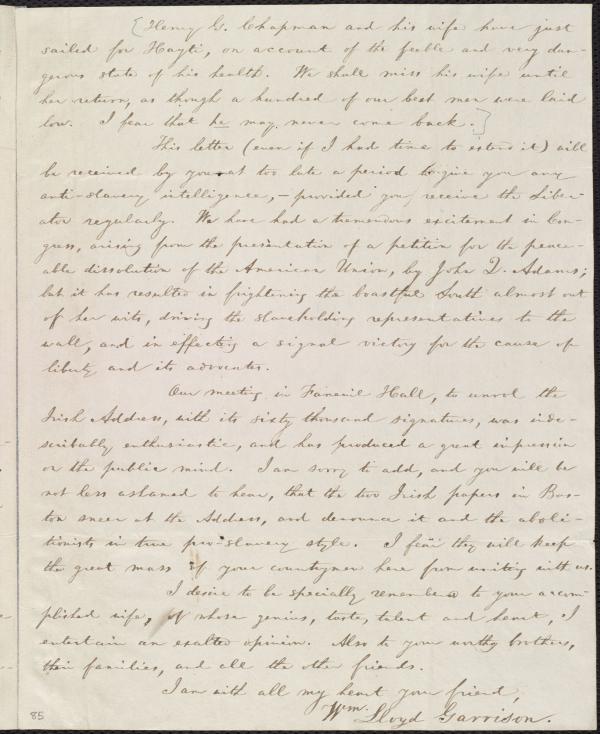 [Henry G. Chapman and his wife have just
sailed for Hayti, on account of the feeble and very dan-
gerous state of his health. We shall miss his wife until
her return, as though a hundred of our best men were laid
low. I fear that he may never come back.]
This letter (even if I had time to extend it) will
be received by you at too late a period to give you any
anti-slavery intelligence,—provided you receive the Liber-
ator regularly. We have had a tremendous excitement in Con-
gress, arising from the presentation of a petition for the peace-
able dissolution of the American Union, by John Q. Adams;
but it has resulted in frightening the boastful South almost out
of her wits, driving the slaveholding representatives to the
wall, and in effecting a signal victory for the cause of
liberty and its advocates.
Our meeting in Faneuil Hall, to unrol the
Irish Address, with its sixty thousand signatures, was inde-
scribably enthusiastic, and has produced a great impression
on the public mind. I am sorry to add, and you will be
not less ashamed to hear, that the two Irish papers in Bos-
ton sneer at the Address, and denounce it and the aboli-
tionists in true pro-slavery style. I fear they will keep
the great mass of your countrymen here from uniting with us.
I desire to be specially remembered to your accom-
plished wife, of whose genius, taste, talent and heart, I
entertain an exalted opinion. Also to your worthy brothers,
their families, and all the other friends.
I am with all my heart your friend,
Wm. Lloyd Garrison.
85